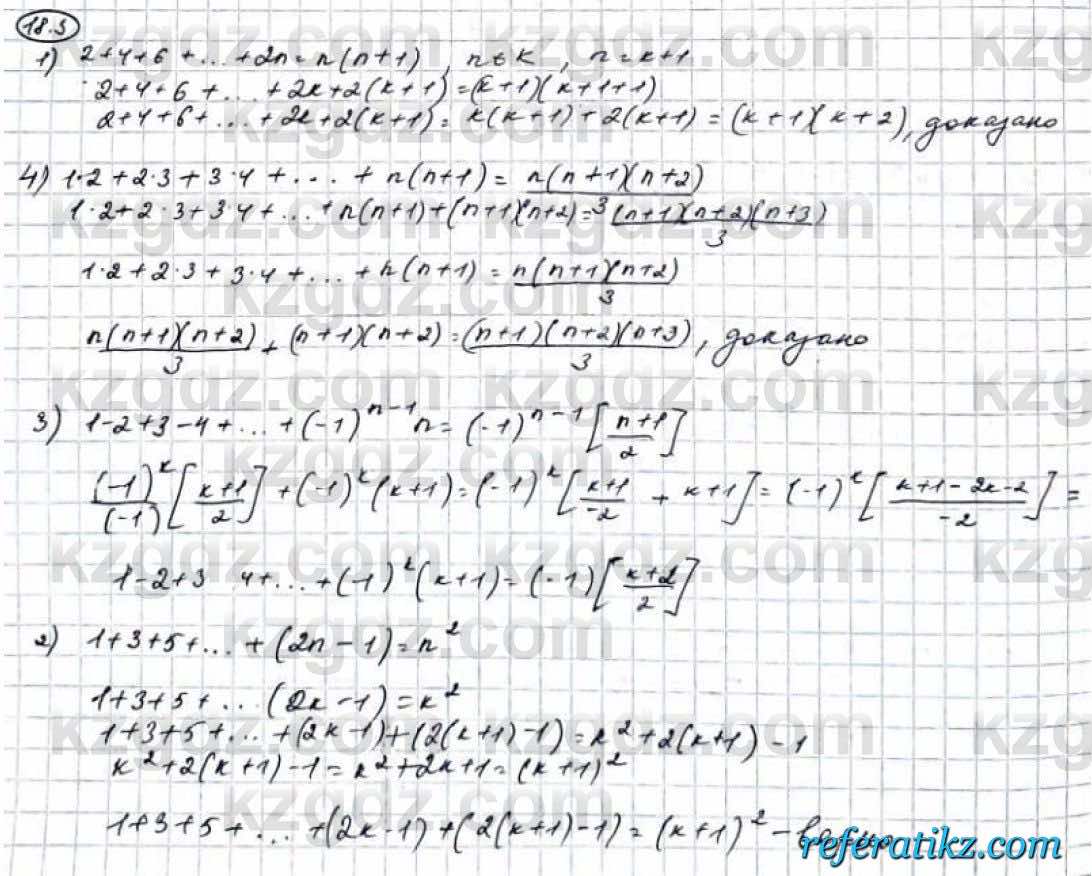 18.3
1) 2+4+6+...+2n=n(n+1), n=k, n=k+1
2+4+6+...+2k+2(k+1)=(k+1)(k+1+1)
2+4+6+...+2k+2(k+1)=k(k+1)+2(k+1)=(k+1)(k+2), доказано
4) 1·2+2·3+3·4+...+n(n+1)=n(n+1)(n+2)/3
1·2+2·3+3·4+...+n(n+1)+(n+1)(n+2)=(n+1)(n+2)(n+3)/3
1·2+2·3+3·4+...+n(n+1)=n(n+1)(n+2)/3
n(n+1)(n+2)/3+(n+1)(n+2)=(n+1)(n+2)(n+3)/3, доказано
3) 1-2+3-4+...+(-1)^{n-1}n=(-1)^{n-1}[n+1/2]
(-1)^k/(-1)[k+1/2]+(-1)^k(k+1)=(-1)^k[k+1/-2+k+1]=(-1)^k[k+1-2k-2/-2]=
1-2+3 4+...+(-1)^k(k+1)=(-1)[k+2/2]
2) 1+3+5+...+(2n-1)=n²
1+3+5+...(2k-1)=k²
1+3+5+...+(2k-1)+(2(k+1)-1)=k²+2(k+1)-1
k²+2(k+1)-1=k²+2k+1=(k+1)²
1+3+5+...+(2k-1)+(2(k+1)-1)=(k+1)²-верно
kzgdz.com
referatikz.com